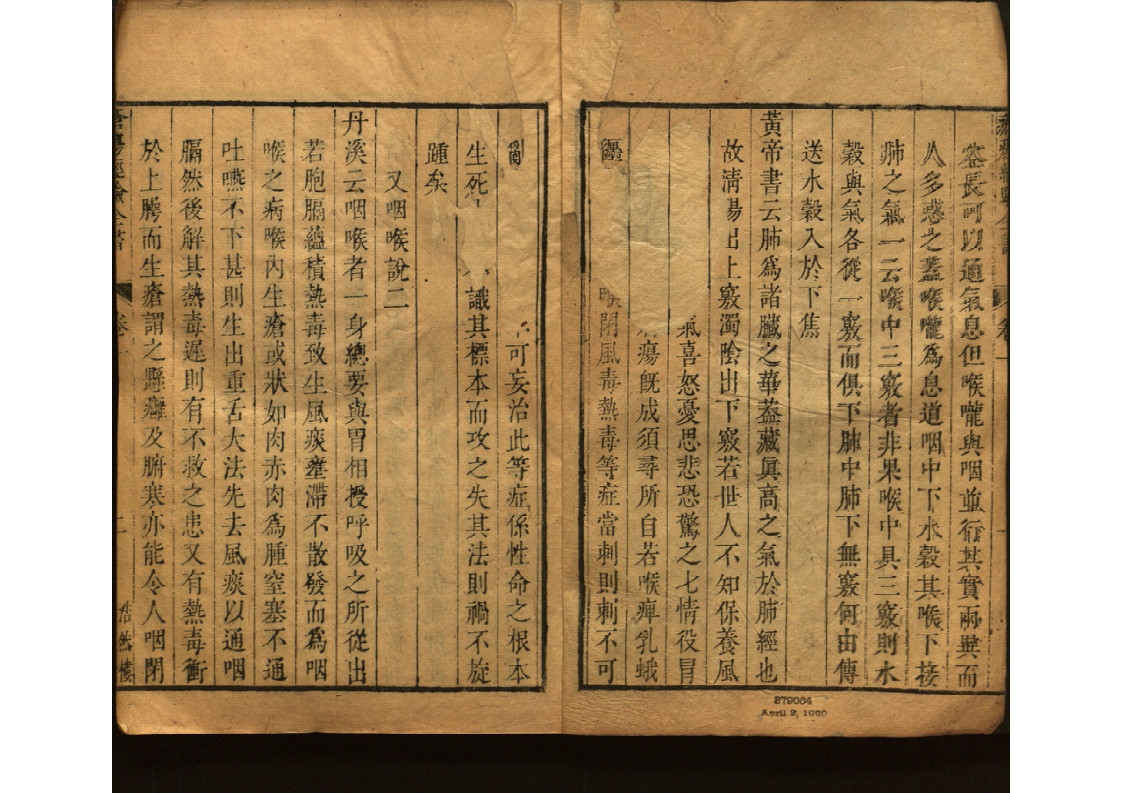 長可以通氣息但喉嚨與咽並行其實兩異而
人多惑之蓋喉嚨為息道咽中下水穀其喉下接
肺之氣一云喉中三竅者非果喉中具三竅則水
穀與氣各從一竅而俱下肺中肺下無竅何由傳
送水穀入於下焦
黃帝書云肺為諸臟之華葢藏真高之氣於肺經也
故清陽出上竅濁陰出下竅若世人不知保養風
氣喜怒憂思悲恐驚之七情役冒
瘍既成須尋所自若喉痺乳蛾
喉閉風毒熱毒等症當刺則刺不可
可妄治此等症係性命之根本
生死 識其標本而攻之失其法則禍不旋
踵矣
又咽喉說二
丹溪云咽喉者一身總要與胃相授呼吸之所從出
若胞膈蘊積熱毒致生風痰壅滯不散發而為咽
喉之病喉內生瘡或狀如肉赤肉為腫窒塞不通
吐嚥不下甚則生出重舌大法先去風痰以通咽
膈然後解其熱毒遲則有不救之患又有熱毒衝
於上腭而生瘡謂之懸癰及腑寒亦能令人咽閉
卷一
二
浩然樓
379064
April 2, 1900